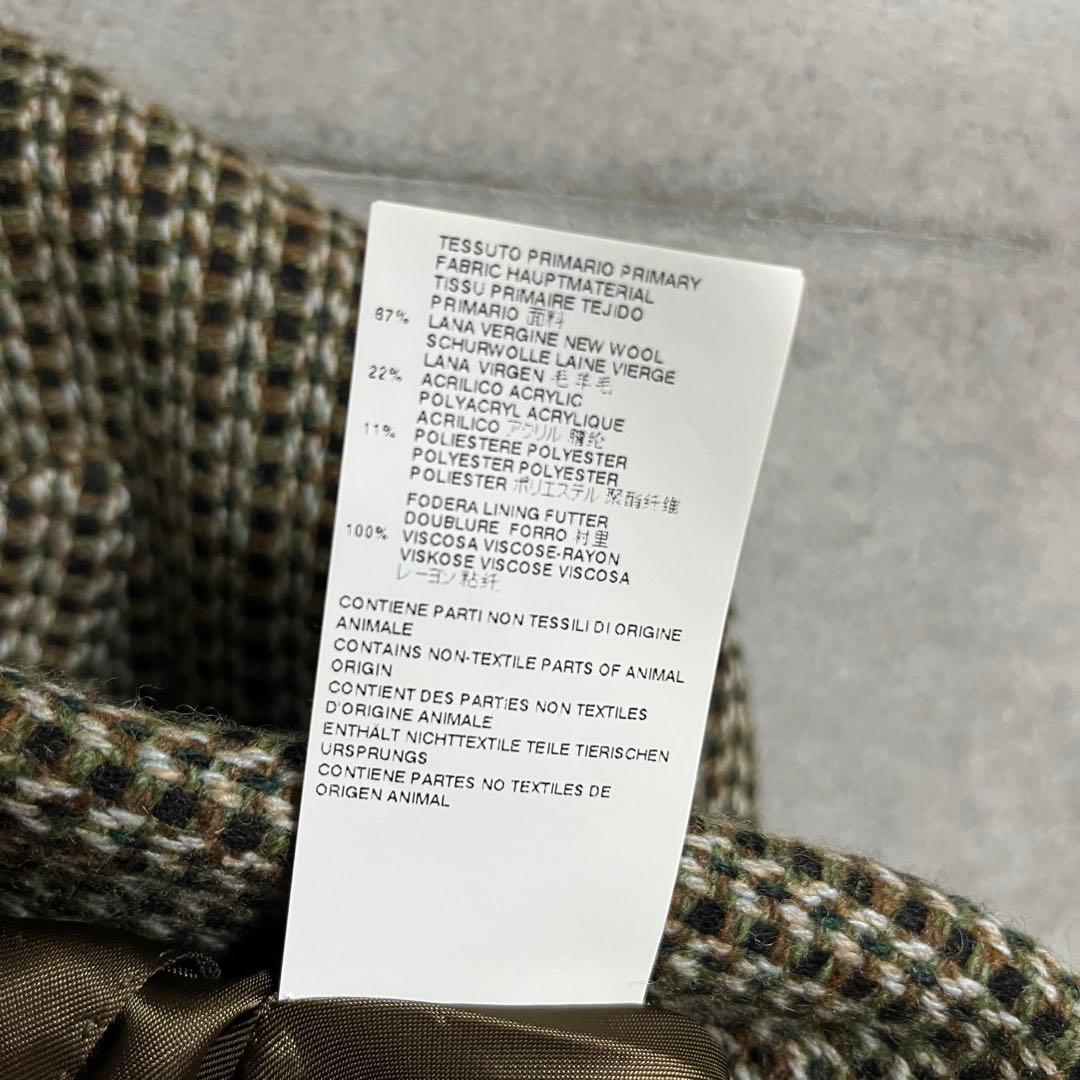 TESSUTO PRIMARIO PRIMARY
FABRIC HAUPTMATERIAL
TISSU PRIMAIRE TEJIDO
PRIMARIO 面料
67% LANA VERGINE NEW WOOL
SCHURWOLLE LAINE VIERGE
LANA VIRGEN 毛 羊毛
22% ACRILICO ACRYLIC
POLYACRYL ACRYLIQUE
ACRILICO アクリル 腈纶
11% POLIESTERE POLYESTER
POLYESTER POLYESTER
POLIESTER ポリエステル 聚酯纤维
FODERA LINING FUTTER
DOUBLURE FORRO 衬里
100% VISCOSA VISCOSE-RAYON
VISKOSE VISCOSE VISCOSA
レーヨン 粘纤
CONTIENE PARTI NON TESSILI DI ORIGINE
ANIMALE
CONTAINS NON-TEXTILE PARTS OF ANIMAL
ORIGIN
CONTIENT DES PARTIES NON TEXTILES
D'ORIGINE ANIMALE
ENTHÄLT NICHTTEXTILE TEILE TIERISCHEN
URSPRUNGS
CONTIENE PARTES NO TEXTILES DE
ORIGEN ANIMAL